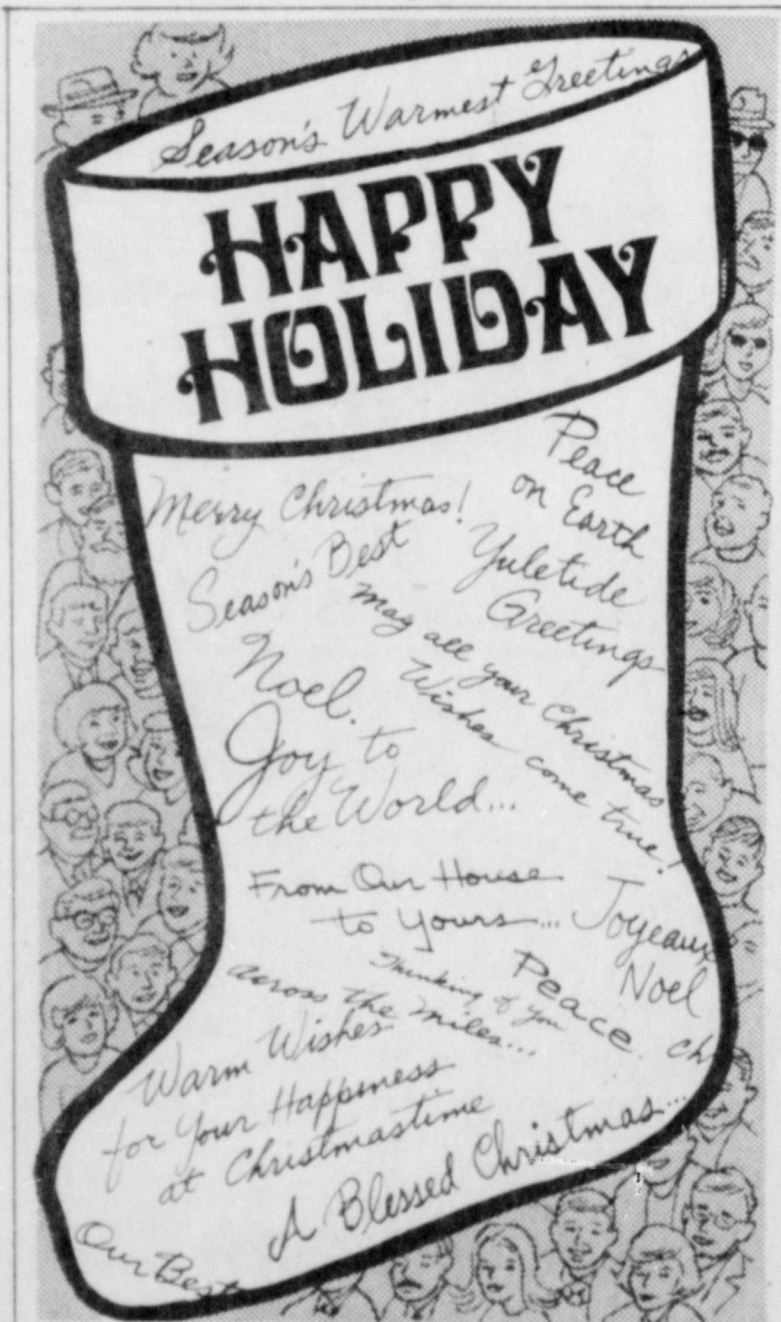 Season's Warmest Greetings
HAPPY
HOLIDAY
Peace
on Earth
Merry Christmas!
Season's Best
Yuletide
Greetings
May all your Christmas
Wishes come true!
Noel.
Joy to
the World...
From Our House
to Yours...
Joyeaux
Noel
Thinking of you
across the miles...
Peace
Ch
Warm Wishes
for Your Happiness
at Christmastime
A Blessed Christmas...
Our Best